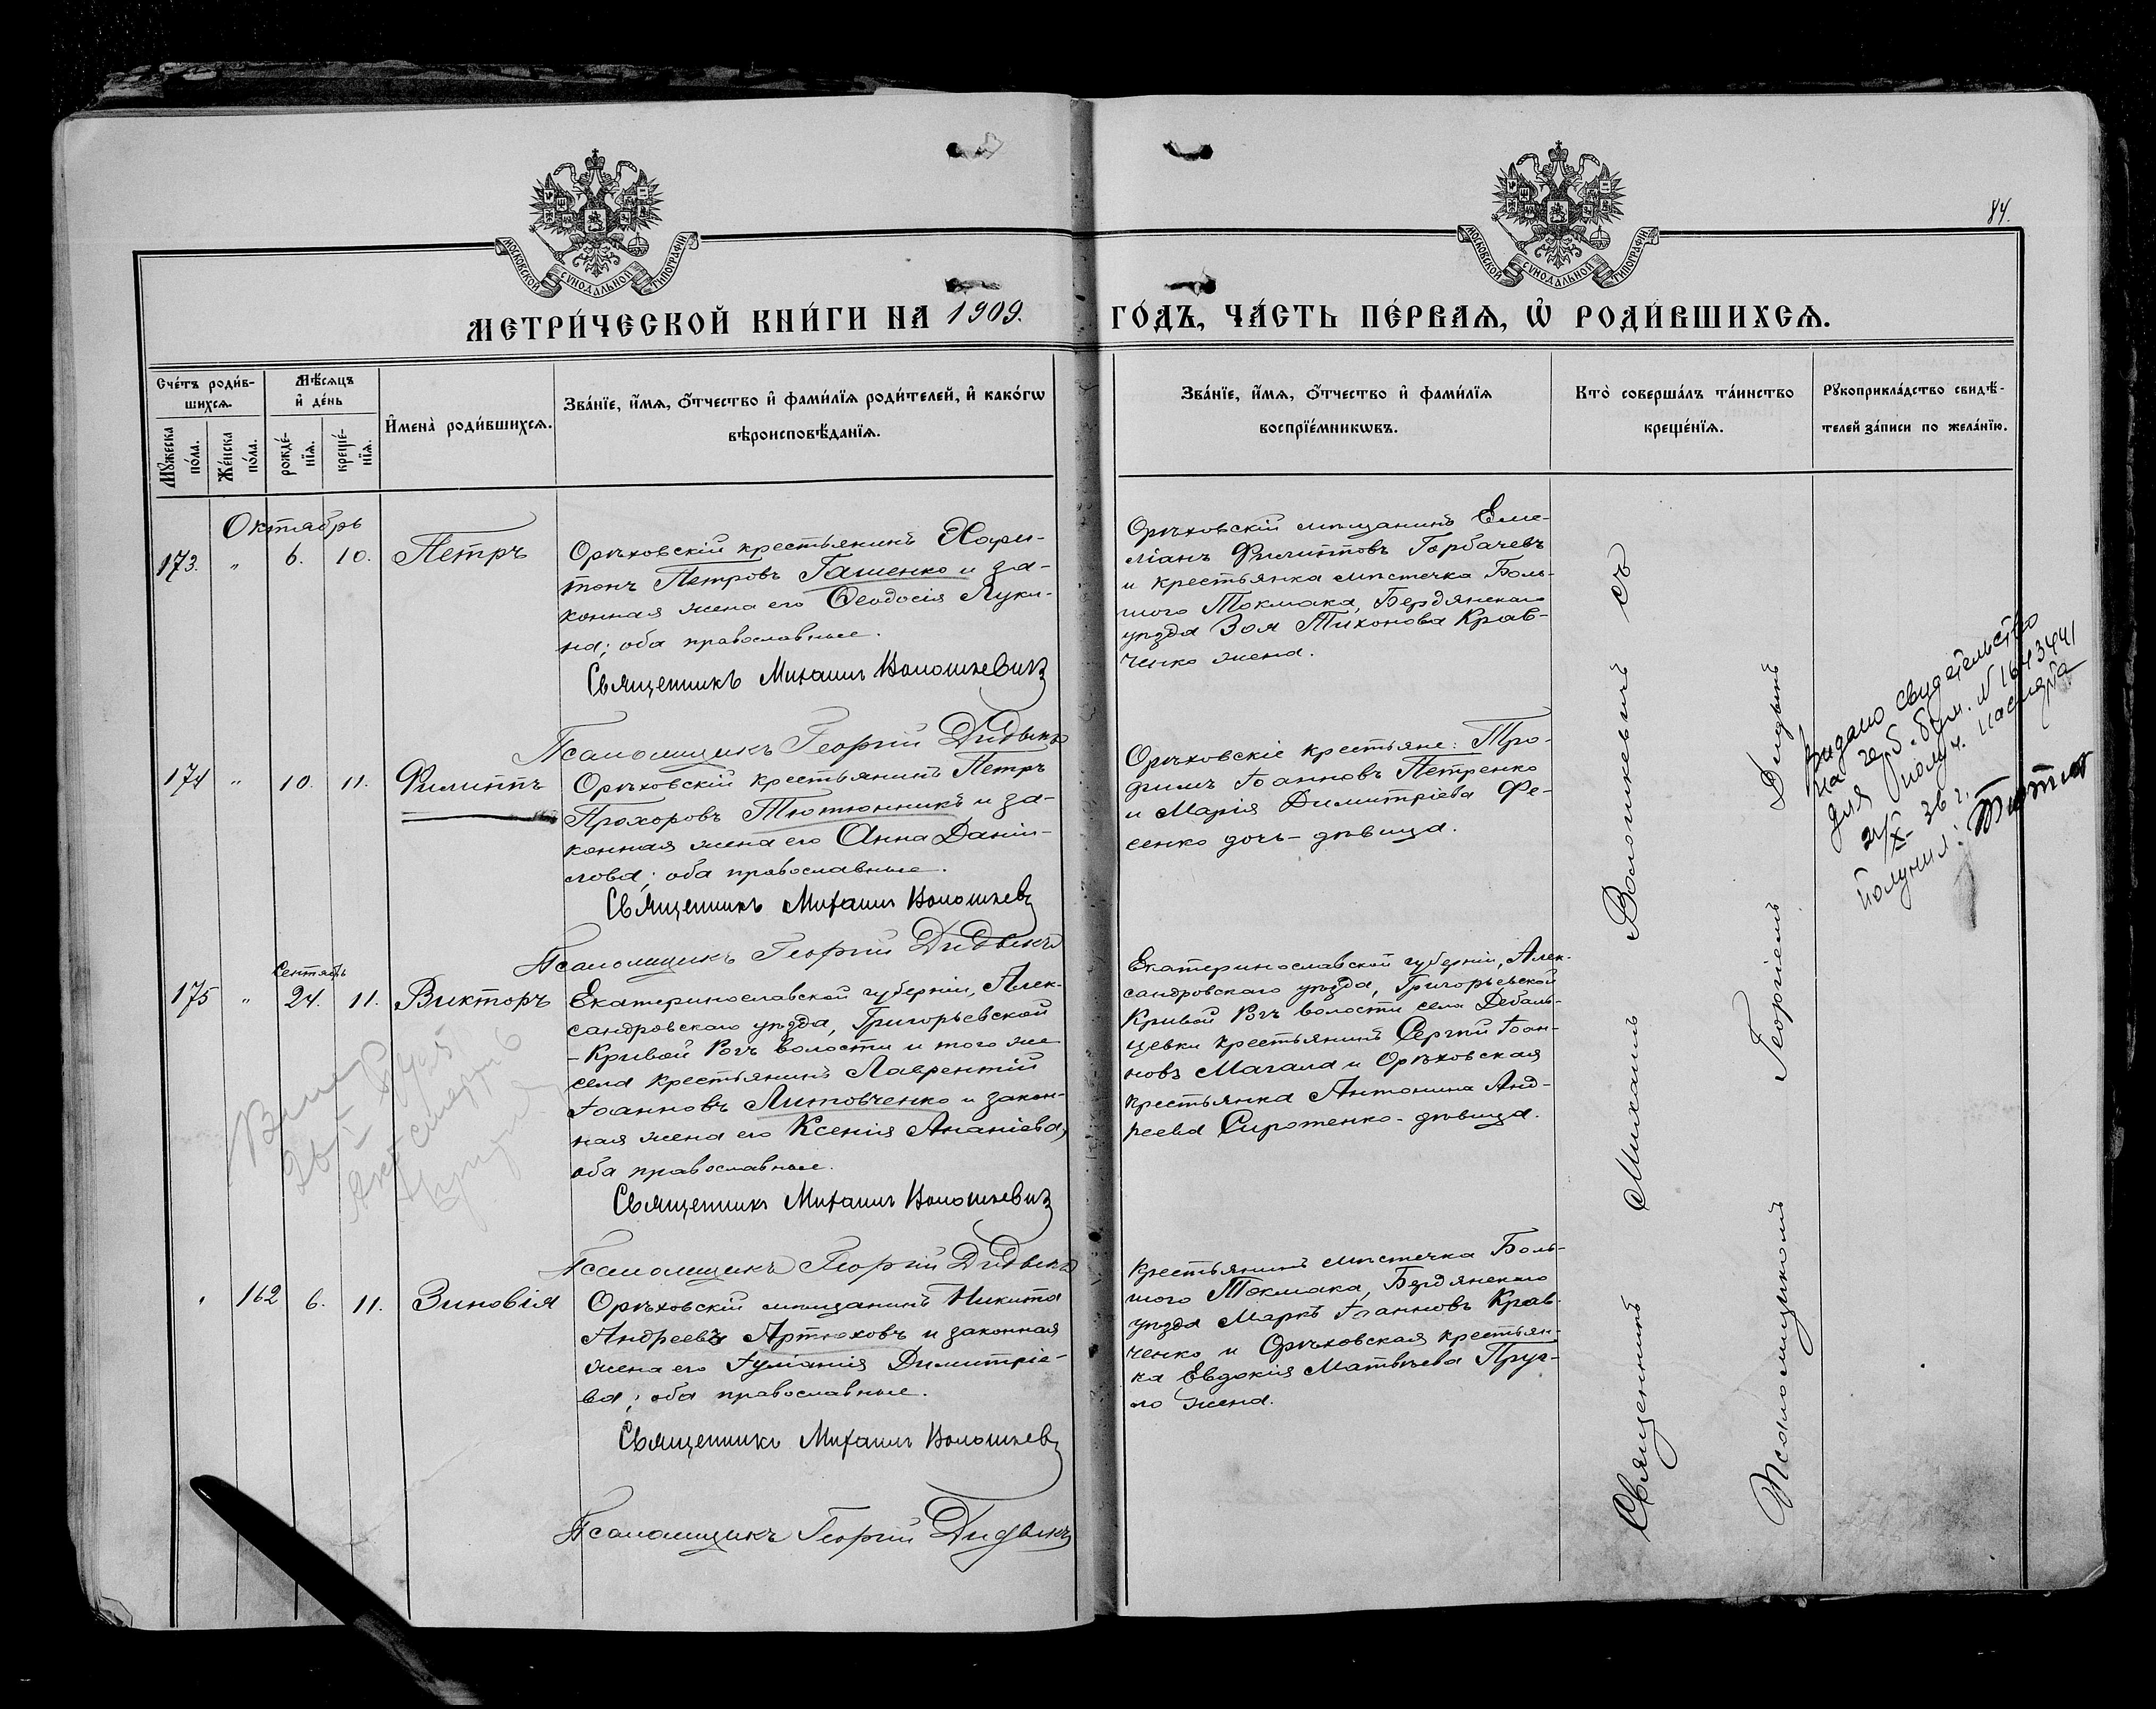 84.
МОСКОВСКОЙ СѴНОДАЛЬНОЙ ТИПОГРАФІИ
МОСКОВСКОЙ СѴНОДАЛЬНОЙ ТИПОГРАФІИ
МЕТРИ́ЧЕСКОЙ КНИ́ГИ НА 1909. ГО́ДЪ, ЧА́СТЬ ПЕ́РВАѦ, Ѡ҆ РОДИ́ВШИХСѦ.
Сче́тъ роди́в-
шихсѧ.
Мꙋ́жеска по́ла.
Же́нска по́ла.
Мѣ́сѧцъ
и҆ де́нь
рожде́-
нїѧ.
креще́-
нїѧ.
И҆мена̀ роди́вшихсѧ.
Зва́нїе, и҆́мѧ, ѻ҆́тчество и҆ фами́лїѧ роди́телей, и҆ како́гѡ
вѣроисповѣ́данїѧ.
Зва́нїе, и҆́мѧ, ѻ҆́тчество и҆ фами́лїѧ
воспрїе́мникѡвъ.
Кто̀ соверша́лъ та́инство
креще́нїѧ.
Рꙋкоприкла́дство свидѣ́-
телей за́писи по жела́нїю.
Октябрь
173. " 6. 10. Петръ
Орѣховскій крестьянинъ Хари-
тонъ Петровъ Гашенко и за-
конная жена его Ѳеодосія Луки-
на; оба православные.
Священникъ Михаилъ Волошкевичъ
Псаломщикъ Георгій Дидыкъ
Орѣховскій мѣщанинъ Еме-
ліанъ Филипповъ Горбачевъ
и крестьянка мѣстечка Боль-
шого Токмака, Бердянскаго
уѣзда Зоя Тихонова Крав-
ченко жена.
174 " 10. 11. Филиппъ
Орѣховскій крестьянинъ Петръ
Прохоровъ Тютюнникъ и за-
конная жена его Анна Даніи-
лова; оба православные.
Священникъ Михаилъ Волошкев
Псаломщикъ Георгій Дидыкъ
Орѣховскіе крестьяне: Тро-
фимъ Іоанновъ Петренко
и Марія Димитріева Фе-
сенко дочь-дѣвица.
Видано свидетельство
на герб. бум. N 1643441
для получ. паспорта
21/X - 36 г.
Получил:
Сентябрь
175 " 24. 11. Викторъ
Екатеринославской губерніи, Алек-
сандровскаго уѣзда, Григорьевской
- Кривой Рогъ волости и того же
села крестьянинъ Лаврентій
Іоанновъ Литовченко и закон-
ная жена его Ксенія Ананіева,
оба православные.
Священникъ Михаилъ Волошкевичъ
Псаломщикъ Георгій Дидыкъ
Екатеринославской губерніи, Алек-
сандровскаго уѣзда, Григорьевской
Кривой Рогъ волости села Дебаль-
цевки крестьянинъ Сергій Іоан-
новъ Магала и Орѣховская
крестьянка Антонина Анд-
реева Сиротенко - дѣвица.
" 162 6. 11. Зиновія
Орѣховскій мѣщанинъ Никита
Андреевъ Артюховъ и законная
жена его Іуліанія Димитріе-
ва; оба православные.
Священникъ Михаилъ Волошкев
Псаломщикъ Георгій Дидыкъ
Крестьянинъ мѣстечка Боль-
шого Токмака, Бердянскаго
уѣзда Маркъ Іоанновъ Крав-
ченко и Орѣховская крестьян-
ка Евдокія Матвѣева Пруг-
ло жена.
Священникъ Михаилъ Волошкевичъ съ
Псаломщикомъ Георгіемъ Дидыкъ